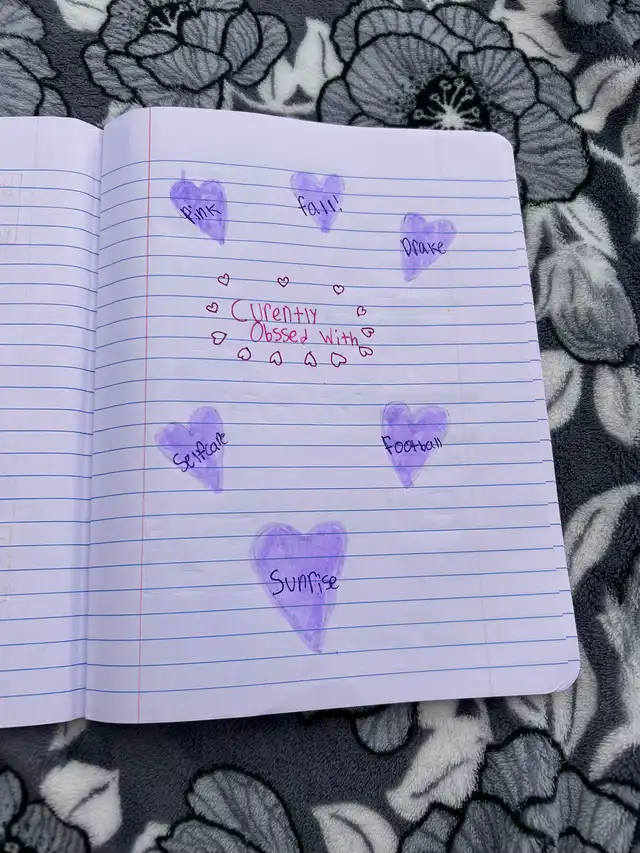 Pink
fall!
Drake
Curently
Obssed With
Selfcare
Football
Sunrise